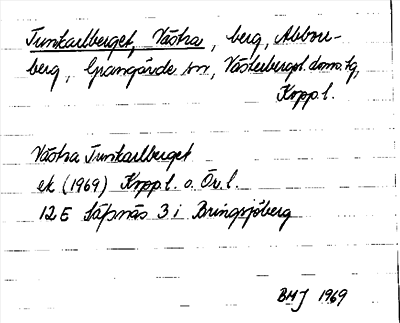 Tunkarlberget, Västra, berg, Abborr-
berg, Grangärde sn, Västerbergsl. doms. tg,
Kopp.l.
Västra Tunkarlberget
ek (1969) Kopp.l. o. Ör.l.
12 E Säfsnäs 3 i Bringsjöberg
BHJ 1969